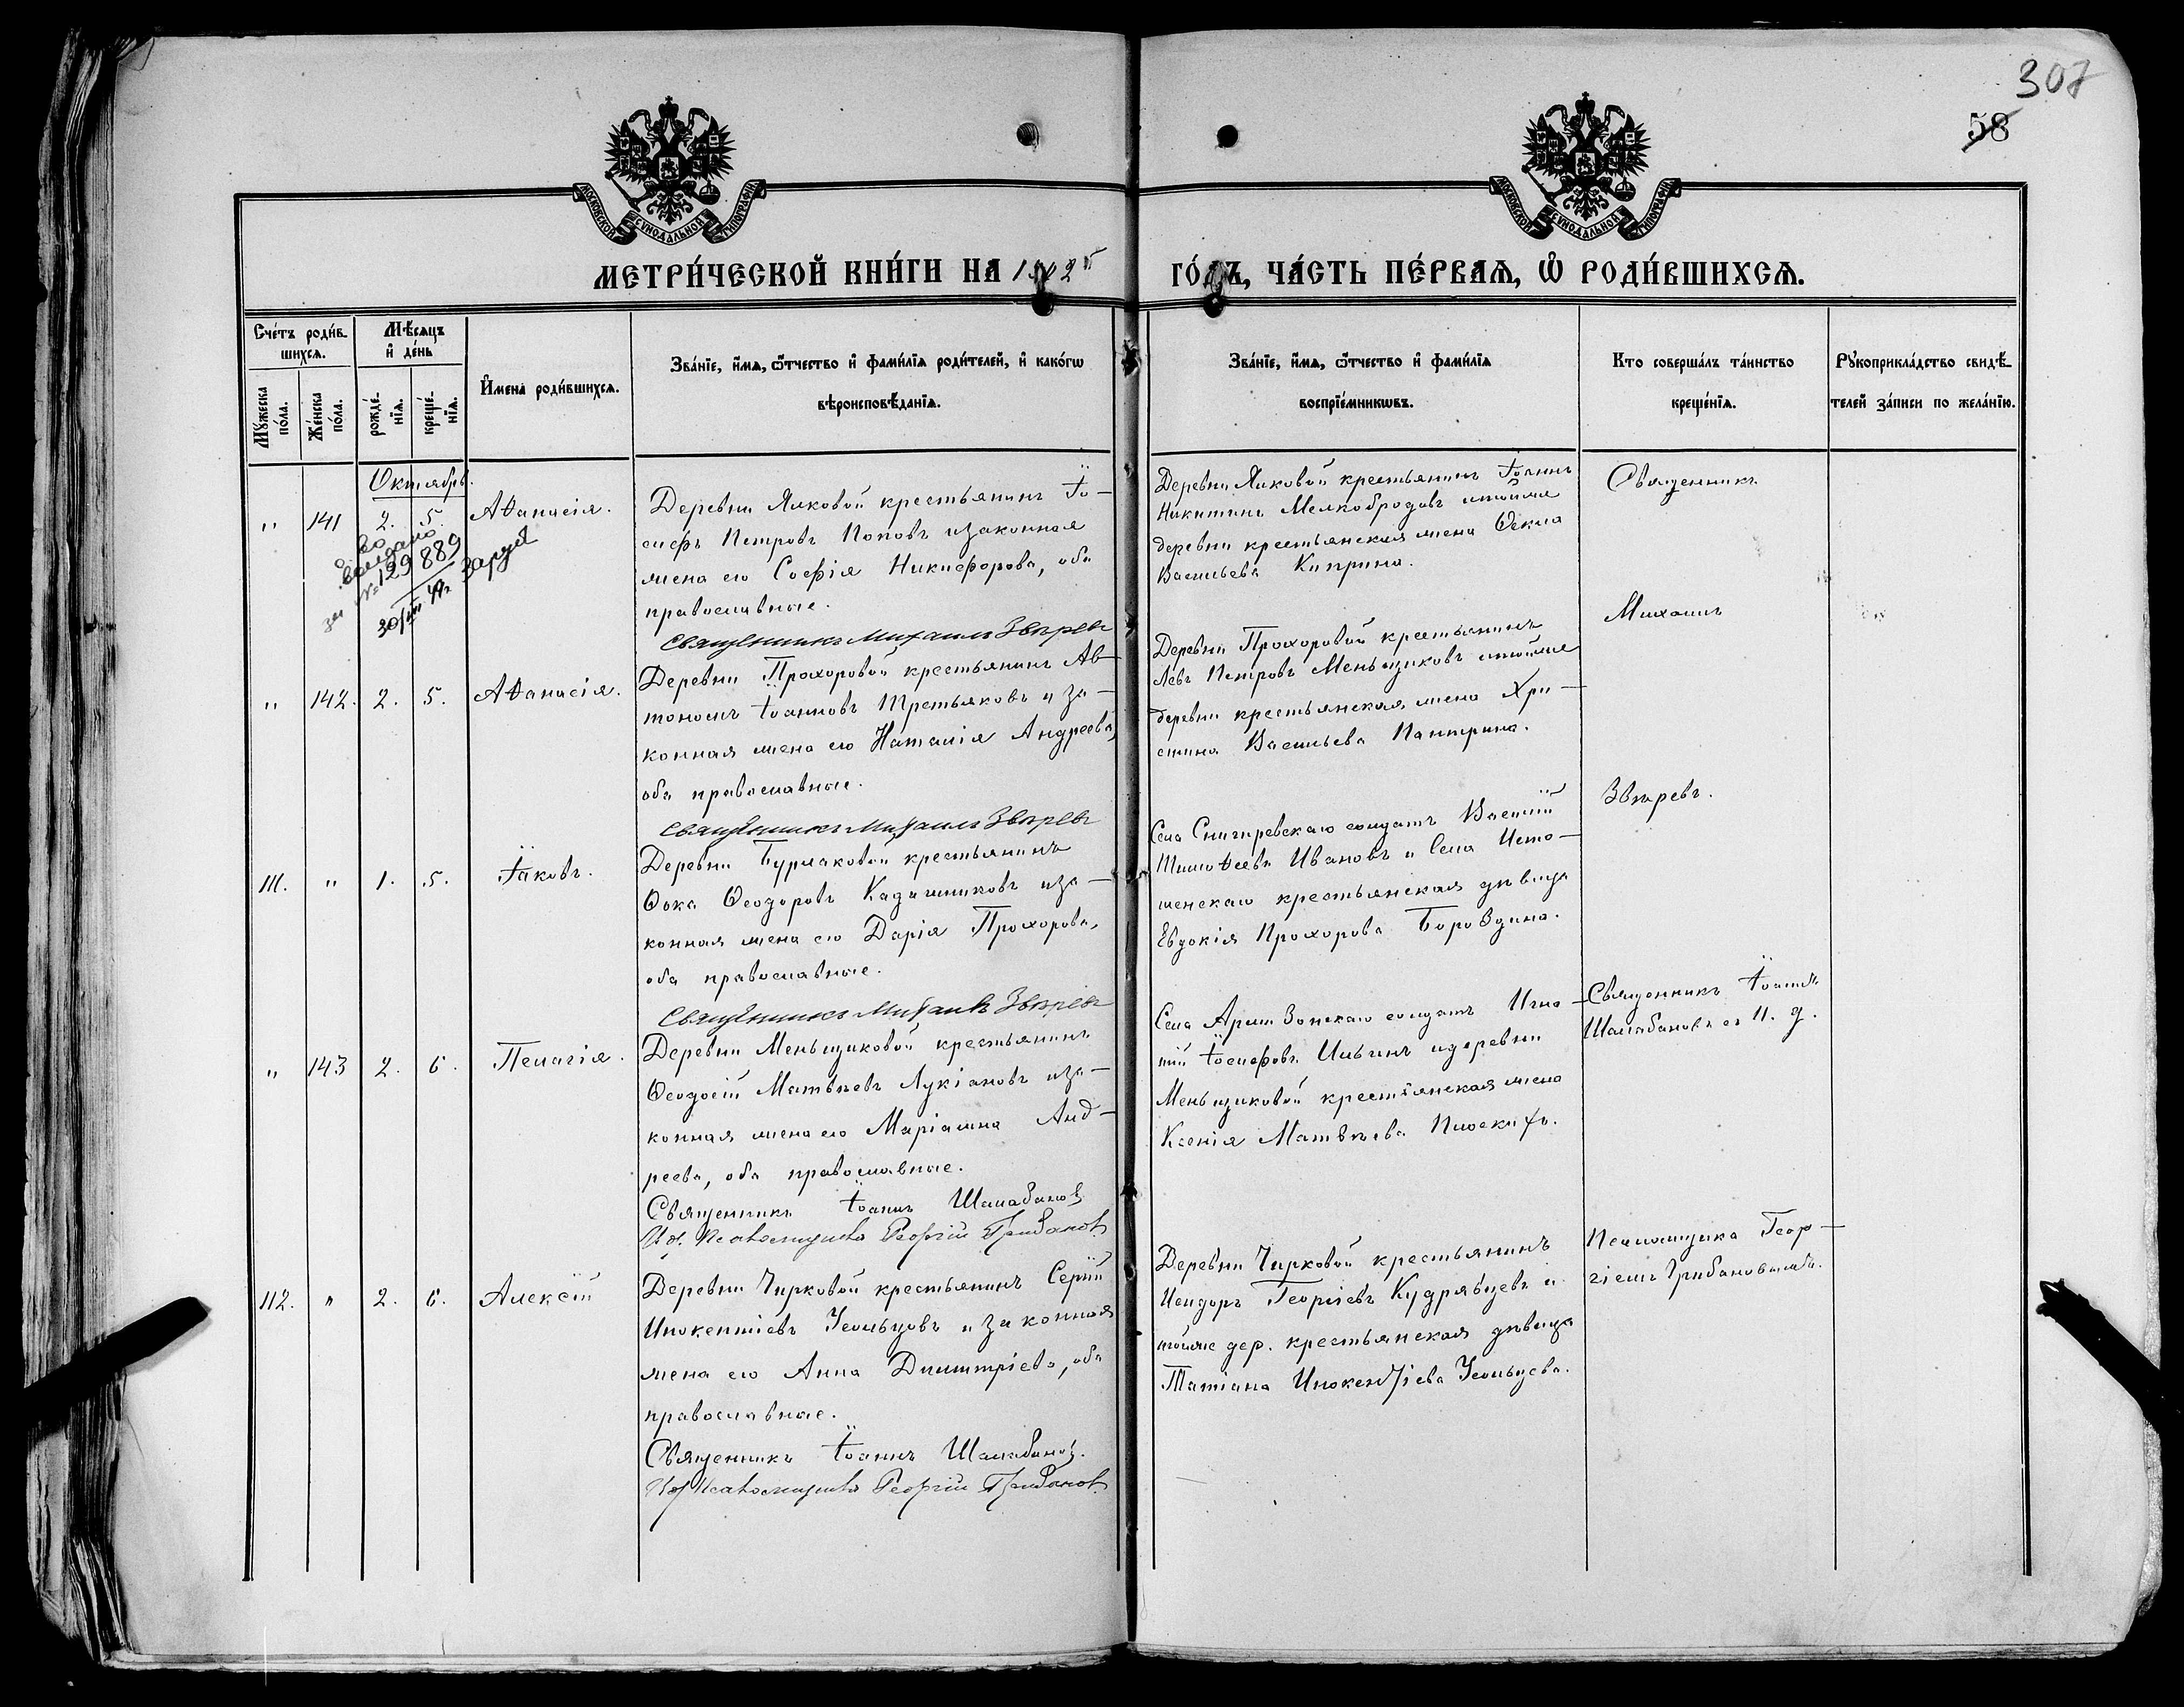 307
58
МОСКОВСКОЙ СУНОДАЛЬНОЙ ТИПОГРАФІИ
МОСКОВСКОЙ СУНОДАЛЬНОЙ ТИПОГРАФІИ
МЕТРИ́ЧЕСКОЙ КНИ́ГИ НА 1902й
ГО́ДЪ, ЧА́СТЬ ПЕ́РВАѦ, Ѡ҆ РОДИ́ВШИХСѦ.
Сче́тъ роди́в-
шихсѧ.
Мꙋ́жеска по́ла.
Же́нска по́ла.
Мѣ́сѧцъ и҆ де́нь
рожде́-нїѧ.
креще́-нїѧ.
И҆мена̀ роди́вшихсѧ.
Зва́нїе, и҆́мѧ, ѻ҆́тчество и҆ фами́лїѧ роди́телей, и҆ како́гѡ
вѣроисповѣ́данїѧ.
Зва́нїе, и҆́мѧ, ѻ҆́тчество и҆ фами́лїѧ
воспрїе́мникѡвъ.
Кто̀ соверша́лъ та́инство
креще́нїѧ.
Рꙋкоприкла́дство свидѣ́-
телей за́писи по жела́нїю.
Октябрь.
" 141 2. 5. Аѳанасія.
Деревни Яиковой крестьянинъ Іо-
сифъ Петровъ Поповъ и законная
жена его Софія Никифорова, оба
православные.
Священникъ Михаилъ Звѣревъ
Деревни Яиковой крестьянинъ Іоаннъ
Никитинъ Мелкобродовъ и той же
деревни крестьянская жена Ѳекла
Васильева Киприна.
Священникъ
выдано
за № 129889
30/III 49г
" 142. 2. 5. Аѳанасія.
Деревни Прохоровой крестьянинъ Ав-
тономъ Іоанновъ Третьяковъ и за-
конная жена его Наталія Андреева,
оба православные.
Священникъ Михаилъ Звѣревъ
Деревни Прохоровой крестьянинъ
Левъ Петровъ Меньщиковъ и той же
деревни крестьянская жена Хри-
стина Васильева Пантрина.
Михаилъ
111. " 1. 5. Іаковъ.
Деревни Бурмаковой крестьянинъ
Ѳока Ѳеодоровъ Кадошниковъ и за-
конная жена его Дарія Прохорова,
оба православные.
Священникъ Михаилъ Звѣревъ
Села Снигиревскаго солдатъ Василій
Тимоѳеевъ Ивановъ и Села Исто-
шенскаго крестьянская дѣвица
Евдокія Прохорова Бороздина.
Звѣревъ.
" 143 2. 6. Пелагія.
Деревни Меньщиковой крестьянинъ
Ѳеодосій Матвѣевъ Лукіановъ и за-
конная жена его Маріамна Анд-
реева, оба православные.
Священникъ Іоаннъ Шалабановъ
И. д. Псаломщика Георгій Грибановъ.
Села солдатъ Игна-
тій Іосифовъ Ильинъ и деревни
Меньщиковой крестьянская жена
Ксенія Матвѣева
Священникъ Іоаннъ
Шалабановъ съ И. д.
112. " 2. 6. Алексій
Деревни Чирковой крестьянинъ Сергій
Инокентіевъ Усольцовъ и законная
жена его Анна Димитріева, оба
православные.
Священникъ Іоаннъ Шалабановъ.
И. д. Псаломщика Георгій Грибановъ.
Деревни Чирковой крестьянинъ
Исидоръ Георгіевъ Кудрявцевъ и
той же дер. крестьянская дѣвица
Татіана Инокентіева Усольцева.
Псаломщика Геор-
гіемъ Грибановымъ.